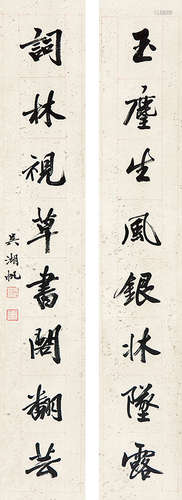 玉麈生風銀牀墜露
詞林視草書閣翻芸
吳湖帆